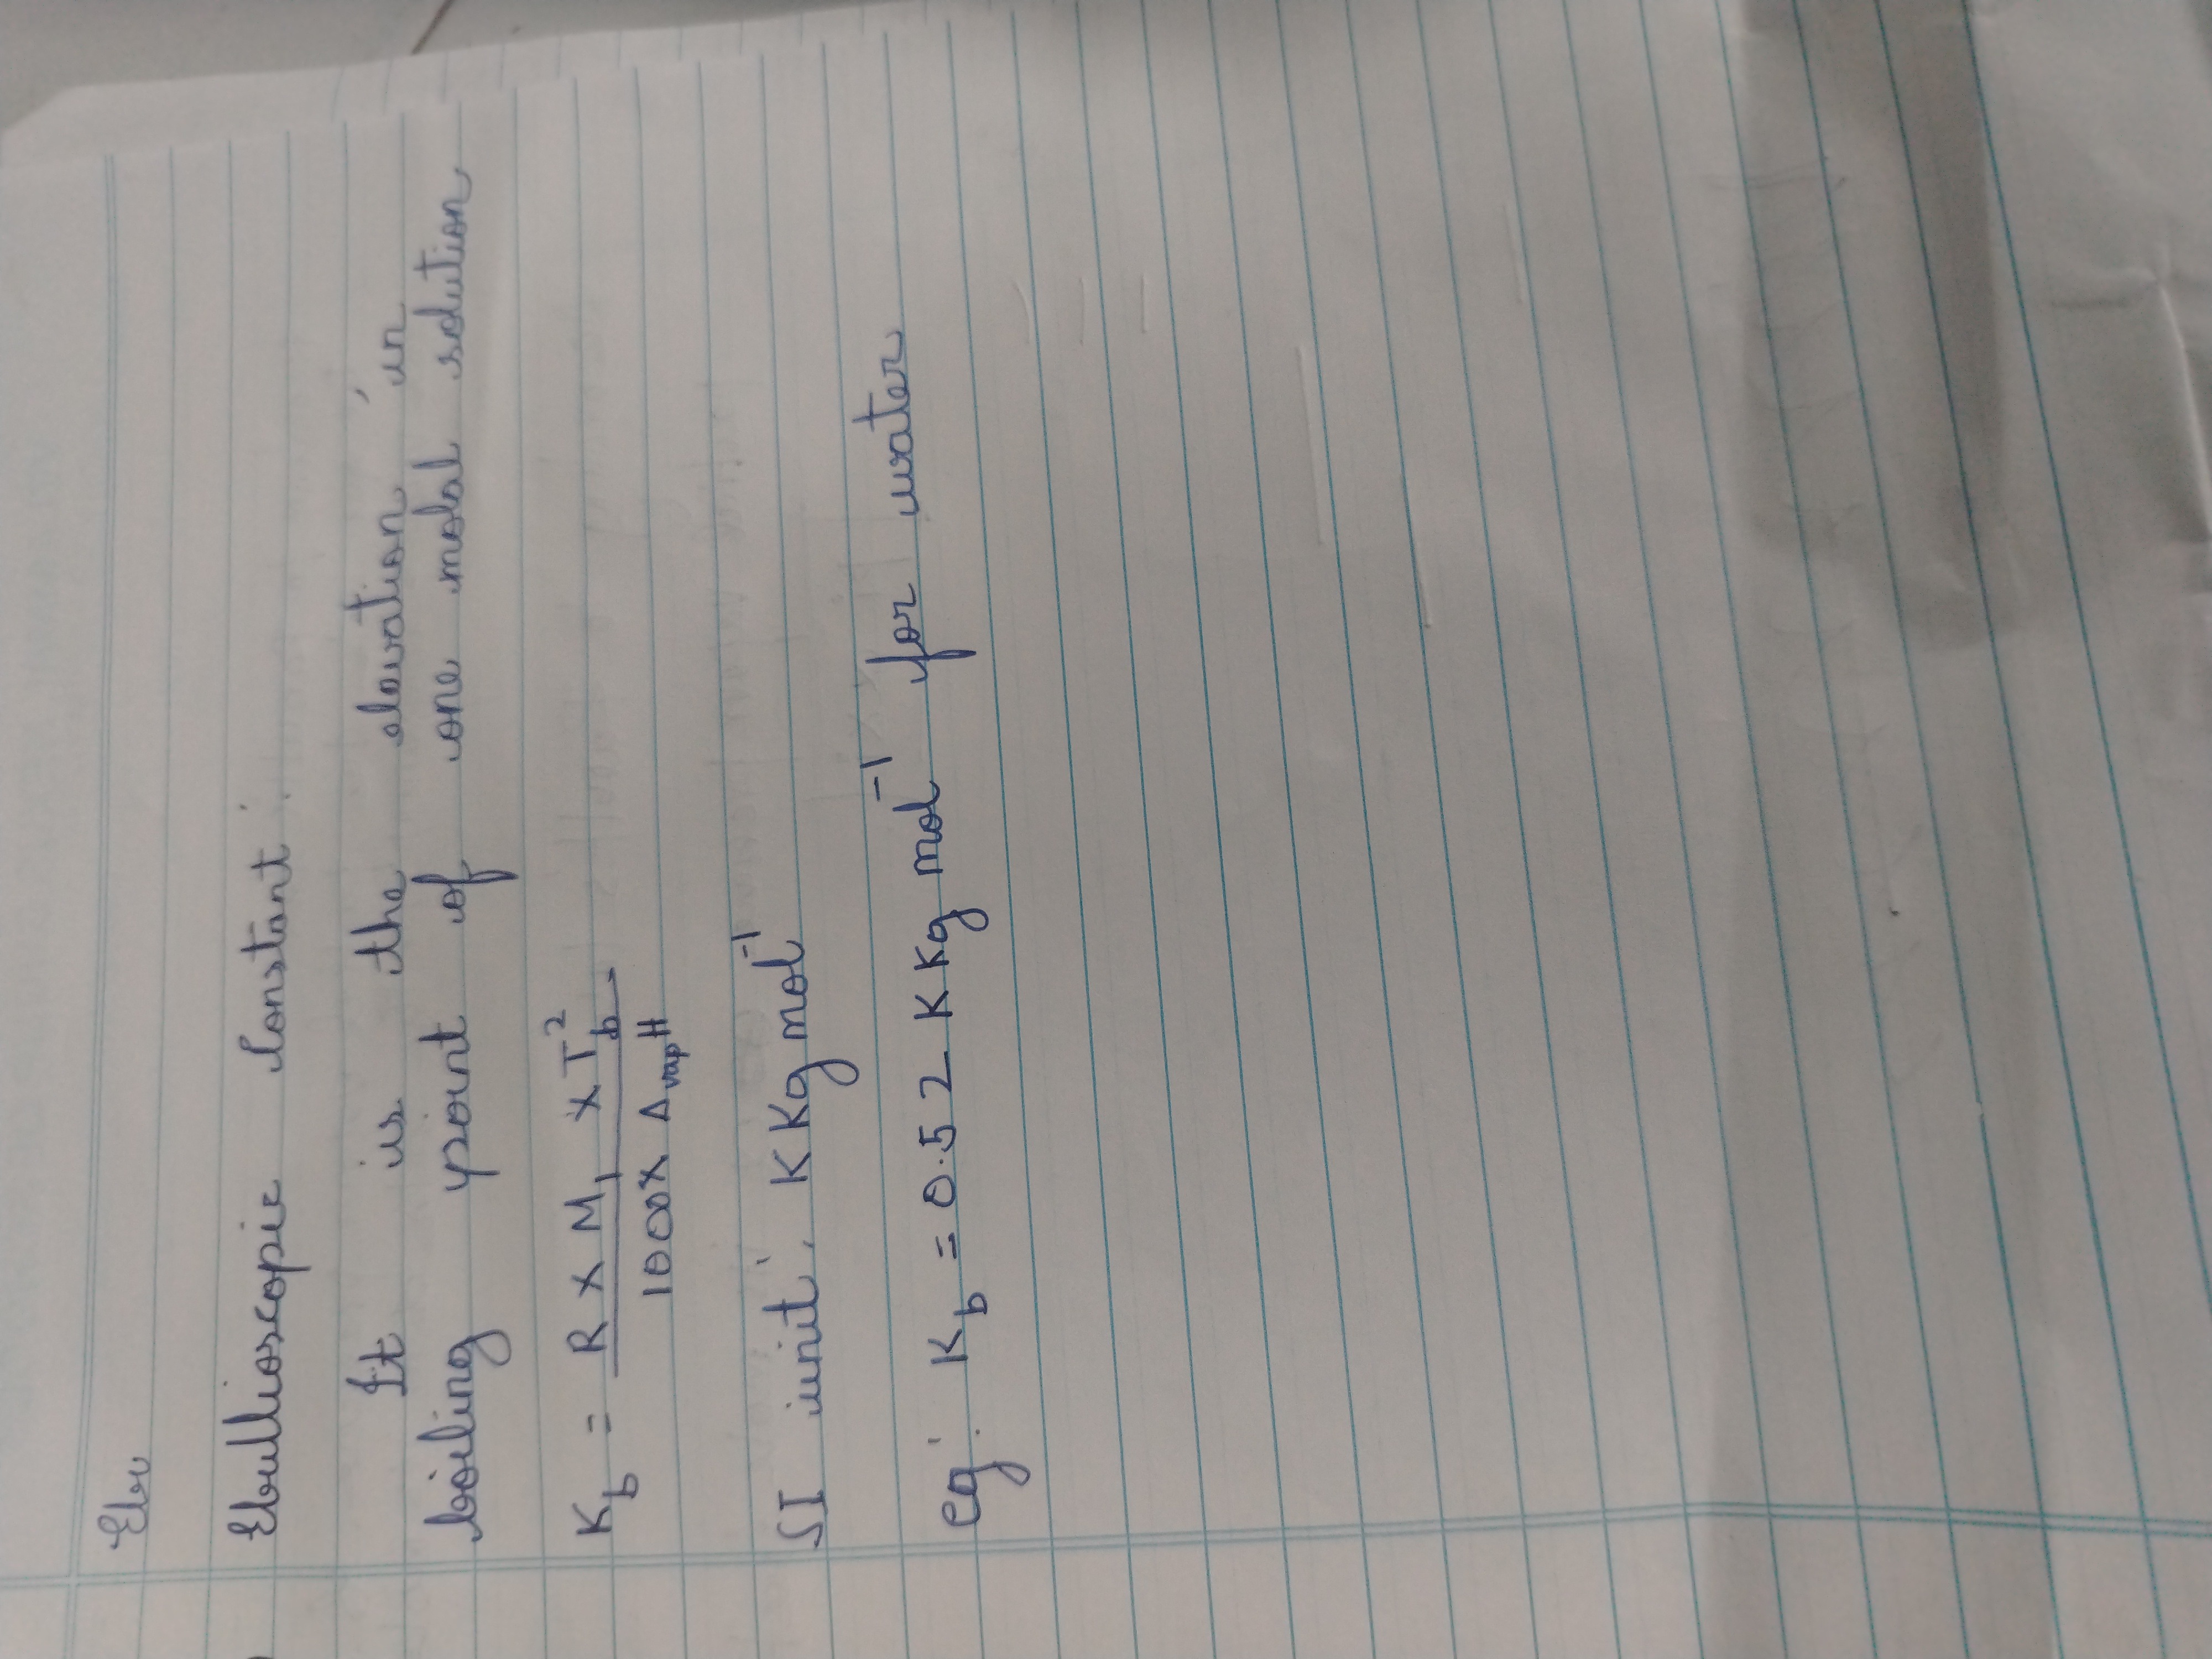 Ebu
Ebullioscopic Constant:
It is the elevation in
boiling point of one molal solution
K_b = R × M₁ × T_b² / 1000 × Δ_vap H
SI unit: K Kg mol⁻¹
eg: K_b = 0.52 K Kg mol⁻¹ for water